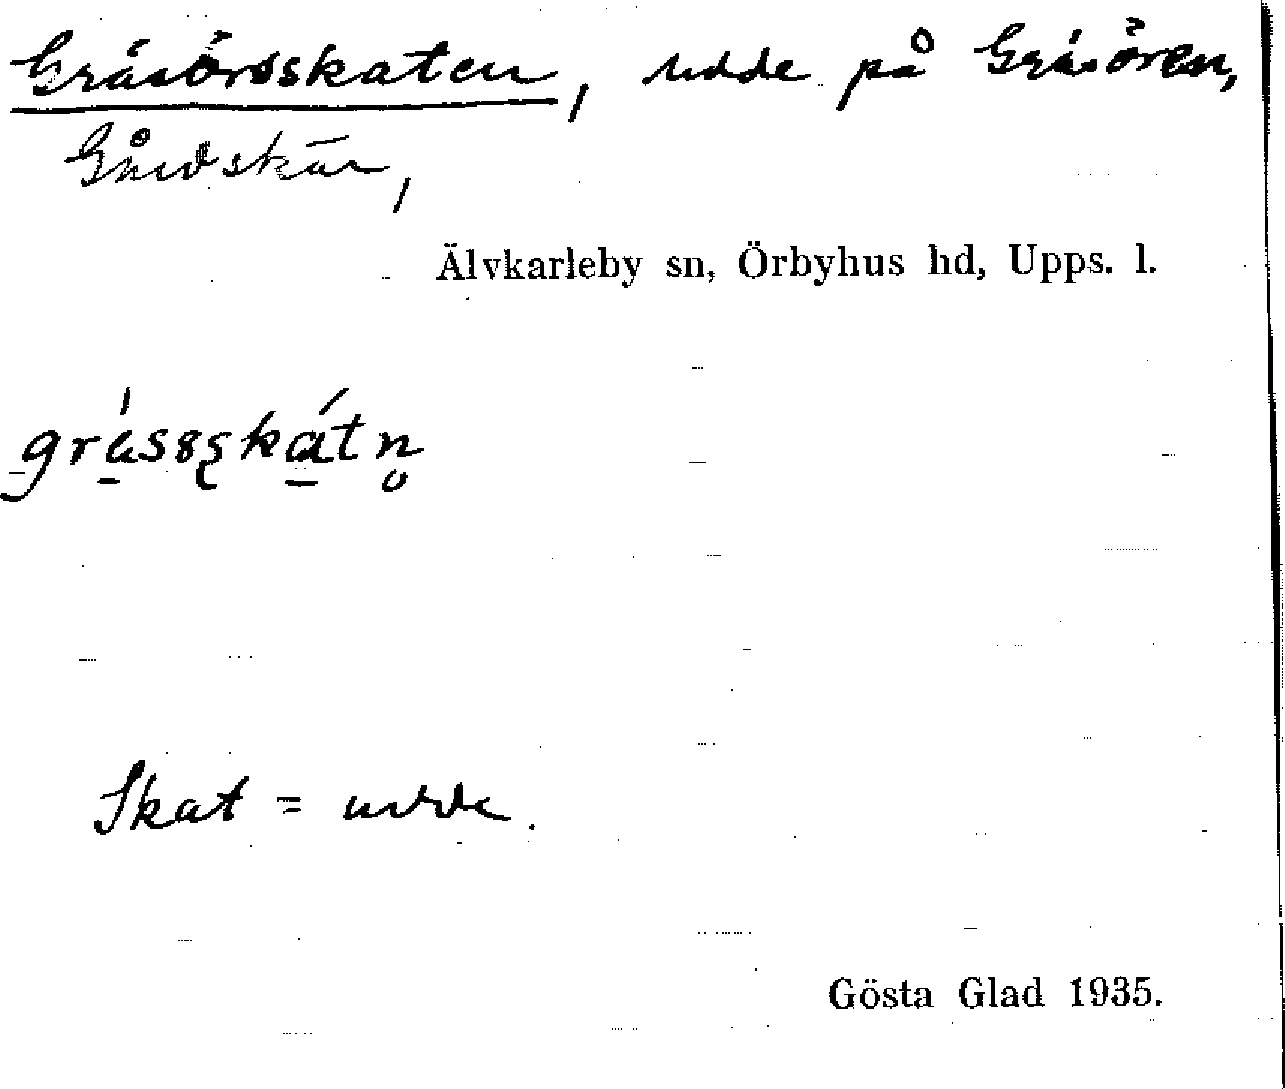 Gräsörsskaten, udde på Gräsören,
Gårdskär,
Älvkarleby sn, Örbyhus hd, Upps. l.
Skat = udde.
Gösta Glad 1935.